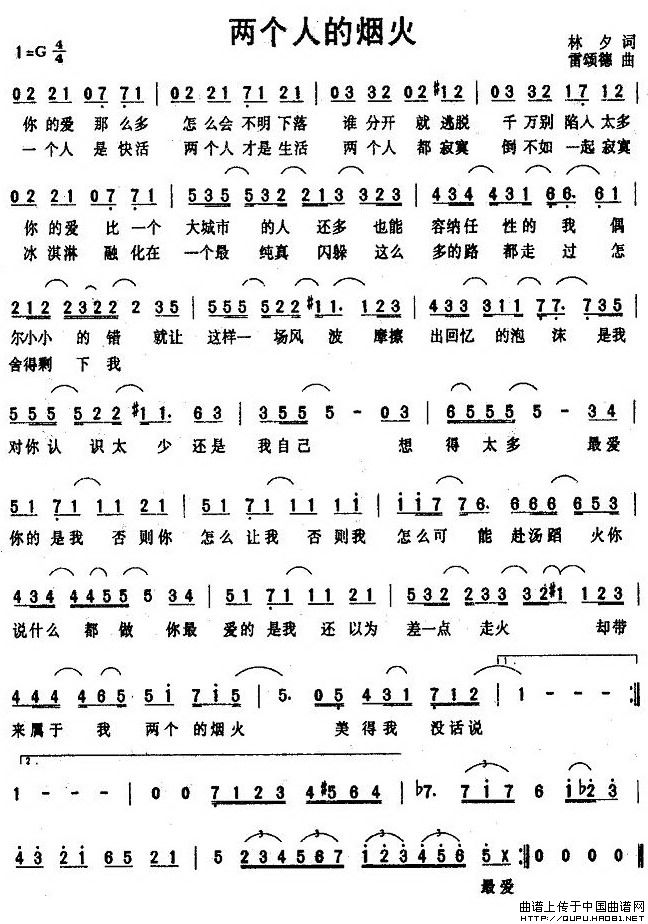 两个人的烟火
1=G 4/4
林夕词
雷颂德曲
02 21 07 71 | 02 21 07 71 | 03 32 02 #12 | 03 32 17 12 |
你的爱 那么多 怎么会 不明下落 谁分开 就逃脱 千万别 陷入太多
一个人 是快活 两个人 才是生活 两个人 都寂寞 倒不如 一起寂寞
02 21 07 71 | 535 532 213 323 | 434 431 66. 61 |
你的爱 比一个 大城市 的人 还多 也能 容纳任 性的我 偶
冰淇淋 融化在 一个最 纯真 闪躲 这么 多的路 都走过 怎
212 2322 2 35 | 555 522 #11. 123 | 433 311 77. 735 |
尔小小 的错 就让 这样一 场风波 摩擦 出回忆 的泡沫 是我
舍得剩 下我
555 522 #11. 63 | 355 5 - 03 | 6555 5 - 34 |
对你认 识太少 还是 我自己 想 得太多 最爱
51 71 11 21 | 51 71 11 1i | ii7 76. 666 653 |
你的是我 否则你 怎么让我 否则我 怎么可 能 赴汤蹈 火你
434 4455 5 34 | 51 71 11 21 | 532 233 32#1 123 |
说什么 都做 你最 爱的是我 还以为 差一点 走火 却带
1.
444 465 5i 7i5 | 5. 05 431 712 | 1 - - - :||
来属于 我 两个 的烟火 美得我 没话说
2.
1 - - - | 0 0 7123 4#564 | b7. 7i7 6 ib23 |
43 21 65 21 | 5 234567 123456 5X :|| 0 0 0 0 ||
最爱
曲谱上传于中国曲谱网
HTTP://QUPU.HAO81.NET